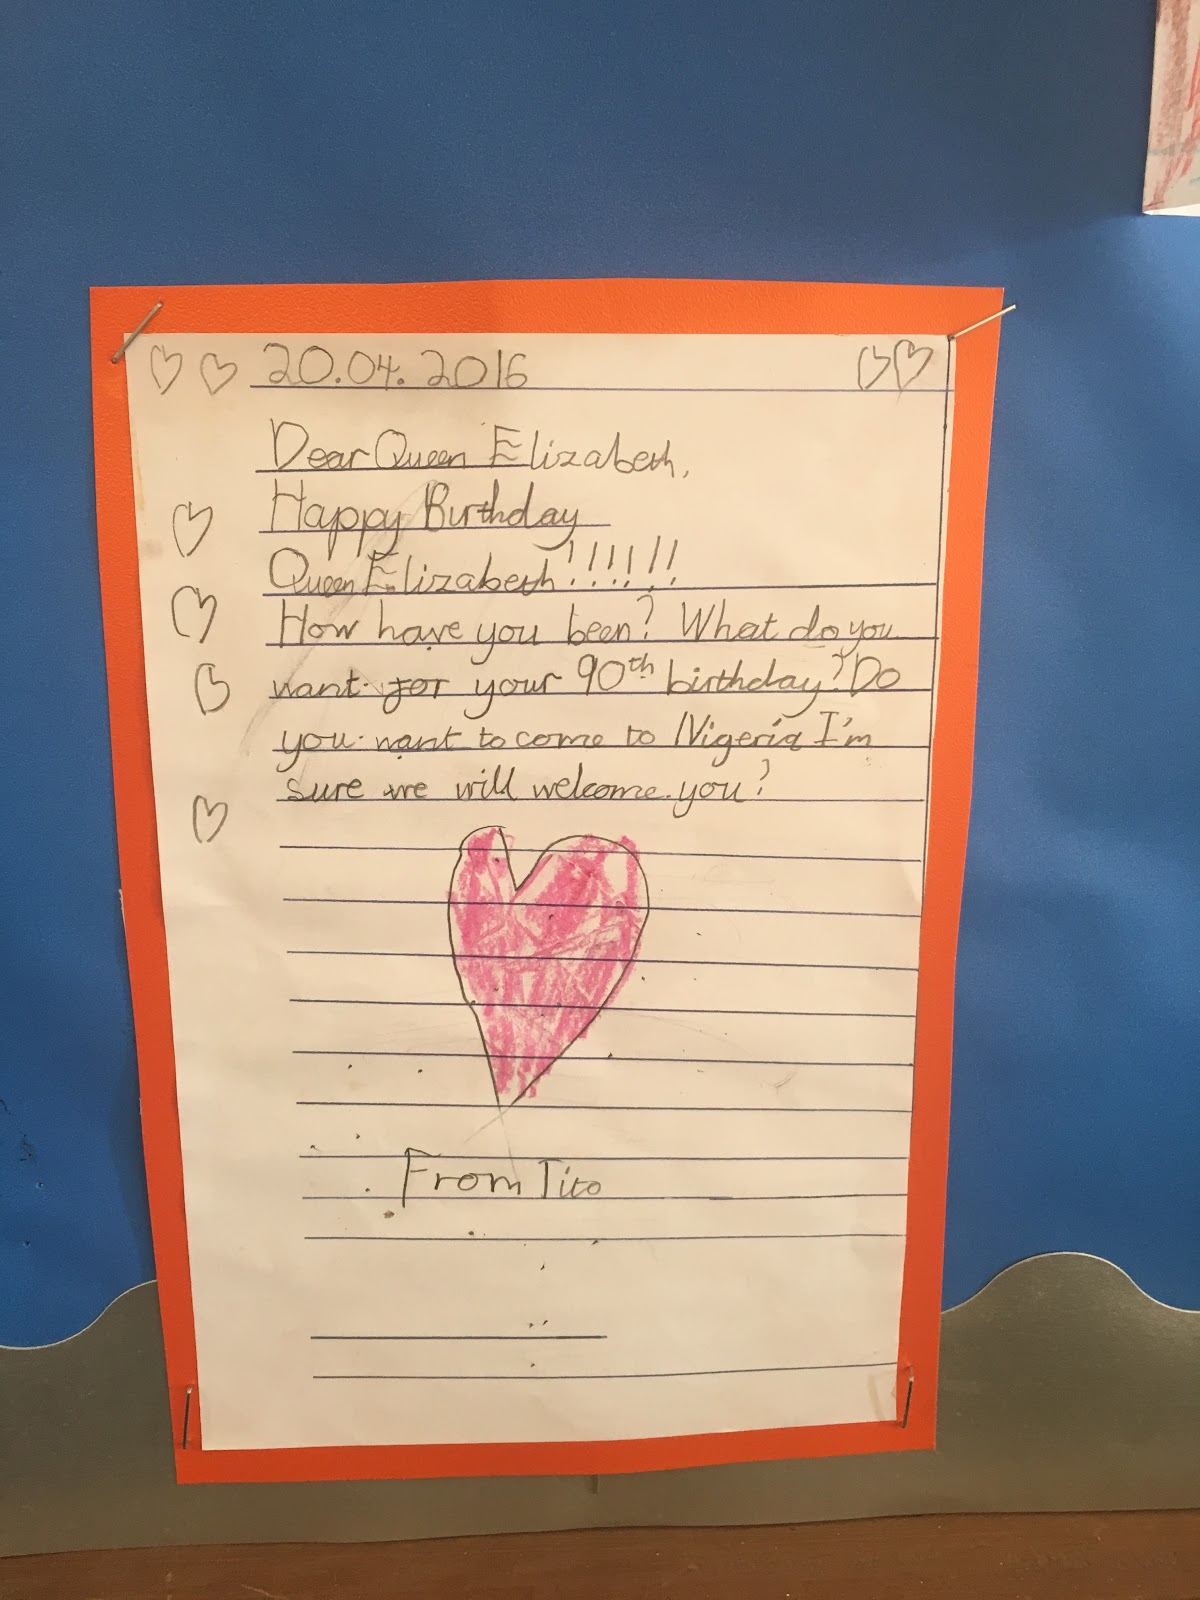 20.04.2016
Dear Queen Elizabeth,
Happy Birthday
Queen Elizabeth!!!!!!
How have you been? What do you
want for your 90th birthday? Do
you want to come to Nigeria I'm
sure we will welcome you?
From Tito